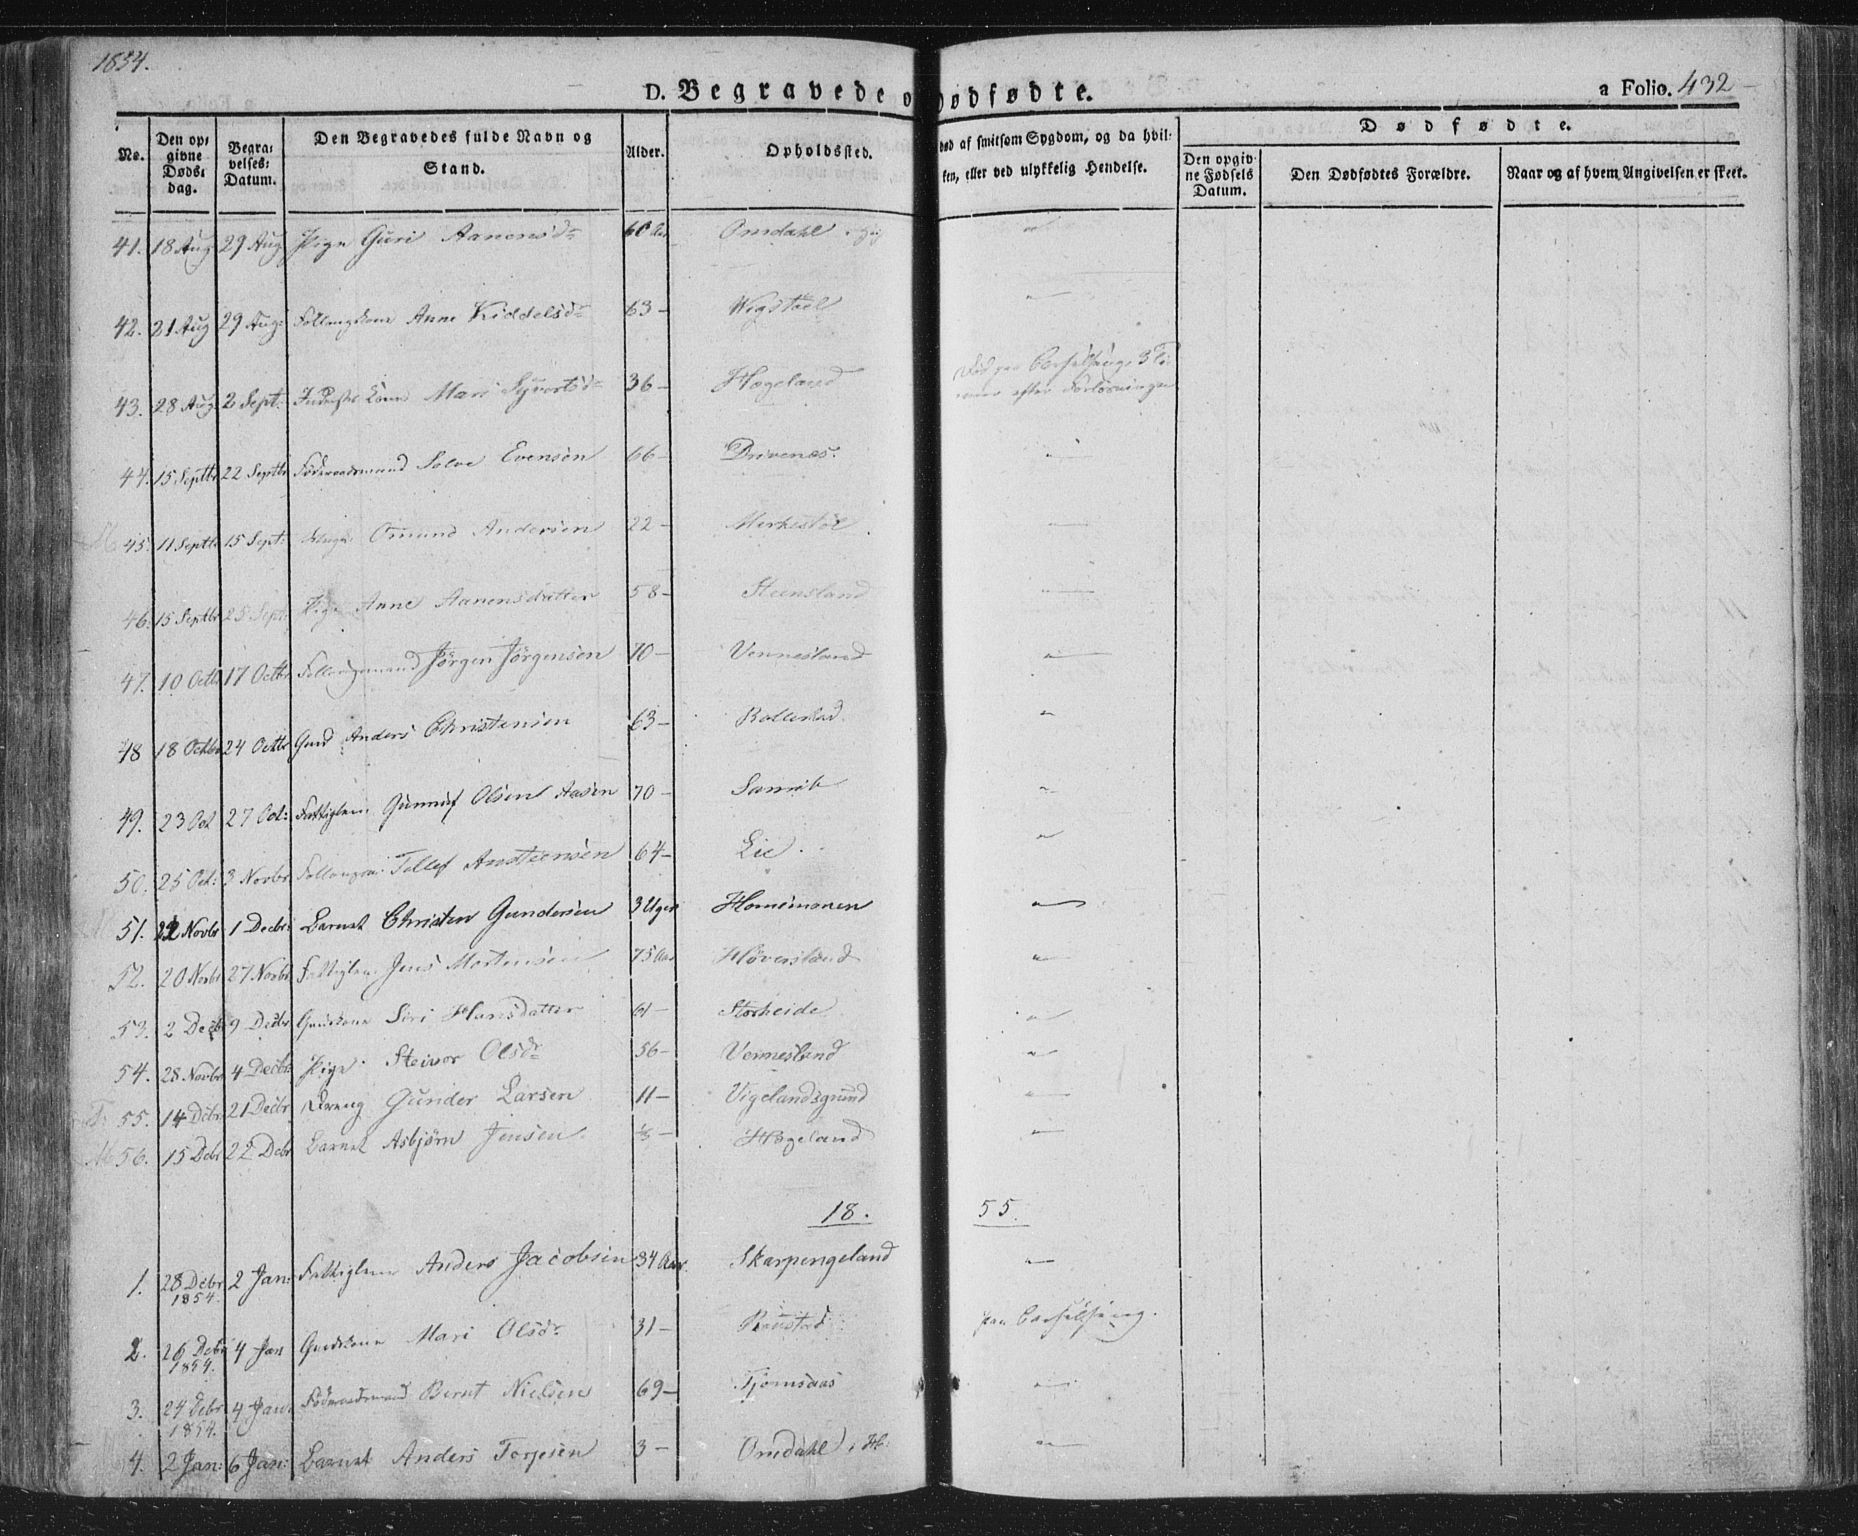 1854.
D. Begravede o
ødfødte.
a Folio. 432
No.
Den op-
givne
Døds-
dag.
Begra-
velses-
Datum.
Den Begravedes fulde Navn og
Stand.
Alder.
Opholdssted.
død af smitsom Sygdom, og da hvil-
ken, eller ved ulykkelig Hendelse.
Dødfødte.
Den opgiv-
ne Fødsels
Datum.
Den Dødfødtes Forældre.
Naar og af hvem Angivelsen er skeet.
41. 18 Aug 29 Aug Pige Guri Aanensdr 60 Aar Omdahl
42. 21 Aug 29 Aug: Anne Kiddelsdr 63 – Wigstøel
43. 28 Aug. 2 Sept: Mari Syvertsdr 36 – Hægeland Død paa Barselseng, 3 Ti-
mer efter Forløsningen
44. 15 Septbr 22 Septbr Føderaadsmand Salve Evensen 66 – Drivenæs.
M 45. 11 Septbr 15 Sept: Omund Andersen 22 – Merkestøl
46. 15 Septbr 25 Sept: Pige Anne Aanensdatter 58 – Steensland
47. 10 Octb 17 Octbr Jørgen Jørgensen 70 – Vennesland
48 18 Octbr 24 Octbr Gmd Anders Christensen 63 –
49. 23 Oct 27 Oct: Fattiglem Gunnuf Olsen Aasen 70 –
50. 25 Oct: 3 Novbr Tellef Anstensen 64 – Lie
51. 22 Novbr 1 Decbr: Barnet Christen Gundersen 3 Uger Homsmoen
52. 20 Novbr 27 Novbr Fattiglem Jens Mortensen 75 Aar Høversland
53. 2 Decbr 9 Decbr Gmdskone Siri Hansdatter 61 – Storheide
54. 28 Novbr 4 Decbr Pige Steinor Olsdr 56 – Vennesland
55. 14 Debr 21 Decbr Dreng Gunder Larsen 11 – Vigelandsgrund
M 56. 15 Debr 22 Debr Barnet Asbjørn Jensen – Hægeland
18. 55.
1. 28 Debr 2 Jan: Fattiglem Anders Jacobsen 34 Aar Skarpengeland
1854.
2. 26 Debr 4 Jan Gmdskone Mari Olsdr 31 – paa Barselseng.
1854.
3. 24 Debr 4 Jan: Føderaadsmand Bernt Nielsen 69 – Tjomsaas
1854.
4. 2 Jan: 6 Jan: Barnet Anders Torjesen 3 – Omdahl i H: